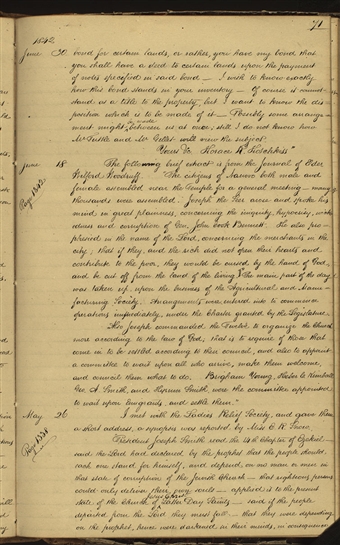 71
1842
June 30 bond for certain lands, or rather, you have my bond that
you shall have a deed to certain lands upon the payment
of notes specified in said bond — I wish to know exactly
how this bond stands in your inventory — Of course it cannot
stand as a title to the property, but I want to know the dis-
position which is to be made of it — Possibly some arrange-
ment might be made between us at once, still I do not know how
Mr Tuttle and Mr Gillet will view the subject.
Yours &c. Horace R. Hotchkiss
June 18 The following brief extract is from the Journal of Elder
Page 1342
Wilford Woodruff. "The citizens of Nauvoo both male and
female assembled near the Temple for a general meeting — many
thousands were assembled. Joseph the Seer arose and spoke his
mind in great plainness, concerning the iniquity, hypocrisy, wick-
edness and corruption of Gen. John Cook Bennett. He also pro-
phesied in the name of the Lord, concerning the merchants in the
city, that if they and the rich did not open their hearts and
contribute to the poor, they would be cursed by the hand of God,
and be cut off from the land of the living. The main part of the day
was taken up upon the business of the Agricultural and Manu-
facturing Society. Arrangements were entered into to commence
operations immediately, under the charter granted by the Legislature.
Also Joseph commanded the Twelve to organize the Church
more according to the law of God; that is to require of those that
come in to be settled according to their counsel, and also to appoint
a committee to wait upon all who arrive, make them welcome,
and counsel them what to do. Brigham Young, Heber C. Kimball,
Geo. A. Smith, and Hyrum Smith, were the committee appointed
to wait upon Emigrants and settle them."
May 26 I met with the Ladies Relief Society, and gave them
a short address, a synopsis was reported by Miss E. R. Snow.
President Joseph Smith read the 14th Chapter of Ezekiel —
said the Lord had declared by the prophet that the people should
each one stand for himself, and depend on no man or men in
that state of corruption of the Jewish Church — that righteous persons
could only deliver their own souls — applied it to the present
state of the Church of Latter Day Saints — said if the people
departed from the Lord they must fall — that they were depending
on the prophet, hence were darkened in their minds, in consequence